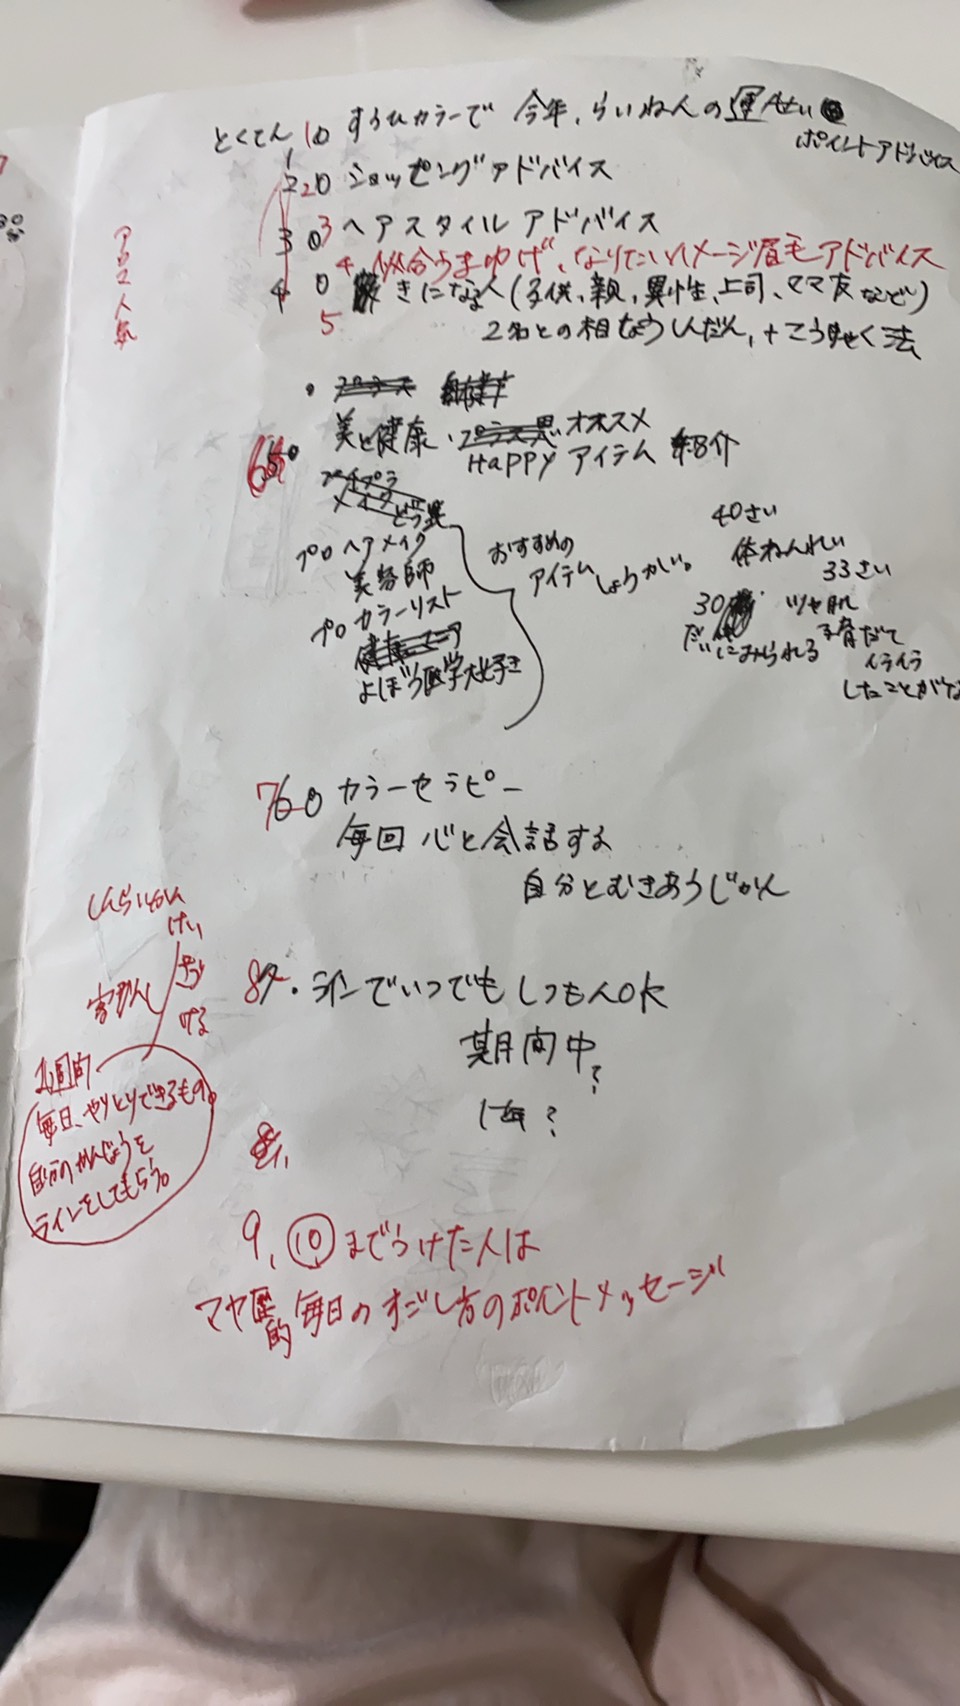 とくてん 1 すうひカラーで 今年、らいねんの運せい
ポイントアドバイス
2 ショッピングアドバイス
3 ヘアスタイルアドバイス
4 似合うまゆげ、なりたいイメージ眉毛アドバイス
5 きになる人(子供、親、異性、上司、ママ友など)
2名との相しょうしんだん、+こうりゃく法
人気
美と健康・オススメ
HAPPY アイテム 紹介
6
プロ ヘアメイク
美容師
プロ カラーリスト
よぼう医学大好き
おすすめの
アイテム しょうかい。
40さい
体ねんれい
33さい
30
ツヤ肌
だいにみられる
子育だて
イライラ
したことがな
7 カラーセラピー
毎回 心と会話する
自分とむきあうじかん
しんらいかん
けい
きづ
ける
8 ・ラインでいつでもしつもんOK
期間中?
1年?
1週間
毎日、やりとりできるもの。
自分のかんじょうを
ラインをしてもらう。
9, ⑩までうけた人は
マヤ暦的 毎日のすごし方のポイントメッセージ